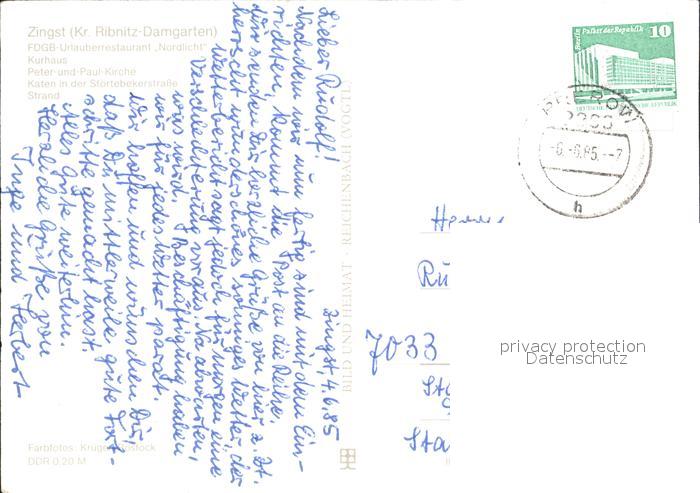 Zingst (Kr. Ribnitz-Damgarten)
FDGB-Urlauberrestaurant „Nordlicht“
Kurhaus
Peter-und-Paul-Kirche
Katen in der Störtebekerstraße
Strand
Zingst, 4.6.85
Lieber Rudolf!
Nachdem wir nun fertig sind mit dem Ein-
richten, kommt die Post an die Reihe.
Wir senden Dir herzliche Grüße von hier z. Zt.
herrscht wunderschönes sonniges Wetter, der
Wetterbericht sagt jedoch für morgen eine
Verschlechterung voraus. Na abwarten,
was wird. Beschäftigung haben
wir für jedes Wetter parat.
Wir hoffen und wünschen Dir,
daß Du mittlerweile gute Fort-
schritte gemacht hast.
Alles Gute weiterhin.
Herzliche Grüße von
Inge und Herbert
BILD UND HEIMAT · REICHENBACH (VOGTL)
Farbfotos: Krüger, Rostock
DDR 0,20 M
Berlin, Palast der Republik
10
DEUTSCHE DEMOKRATISCHE REPUBLIK
PREROW
2383
-6.-6.85.--7
h
Herrn
Ru
7033
Sta
privacy protection
Datenschutz